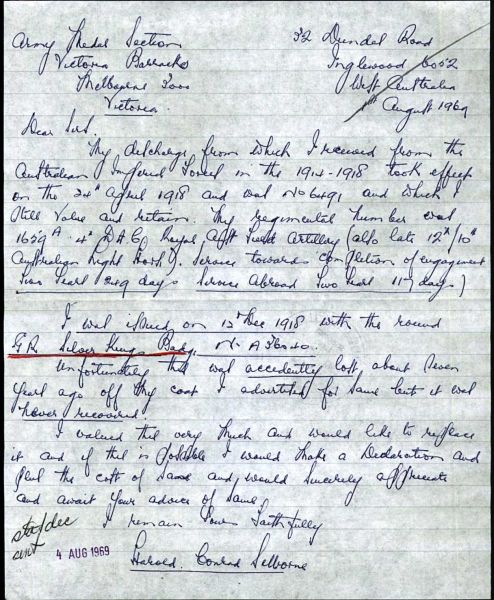 Army Medal Section
Victoria Barracks
Melbourne 3000
Victoria.
32 Dundas Road
Inglewood 6052
West Australia
August 1969
Dear Sirs.
My discharge, from which I received from the
Australian Imperial Forces in the 1914-1918 took effect
on the 24th April 1918 and was No 6491 and which I
still value and retain. My regimental number was
1659A 4th D.A.C. Royal Aust Artillery (also late 12th/10th
Australian Light Horse). Service towards completion of engagement
Two Years 249 days Service Abroad Two Years 117 days)
I was issued on 12th Dec 1918 with the round
G.R. Silver Kings Badge, No A36040.
Unfortunately this was accidently lost, about seven
years ago off my coat I advertised for same but it was
never recovered.
I valued this very much and would like to replace
it and if this is possible I would make a Declaration and
the cost of same and would sincerely appreciate
and await your advice of same,
I remain Yours Faithfully
Harold. Conrad Selborne
stat/dec
4 AUG 1969